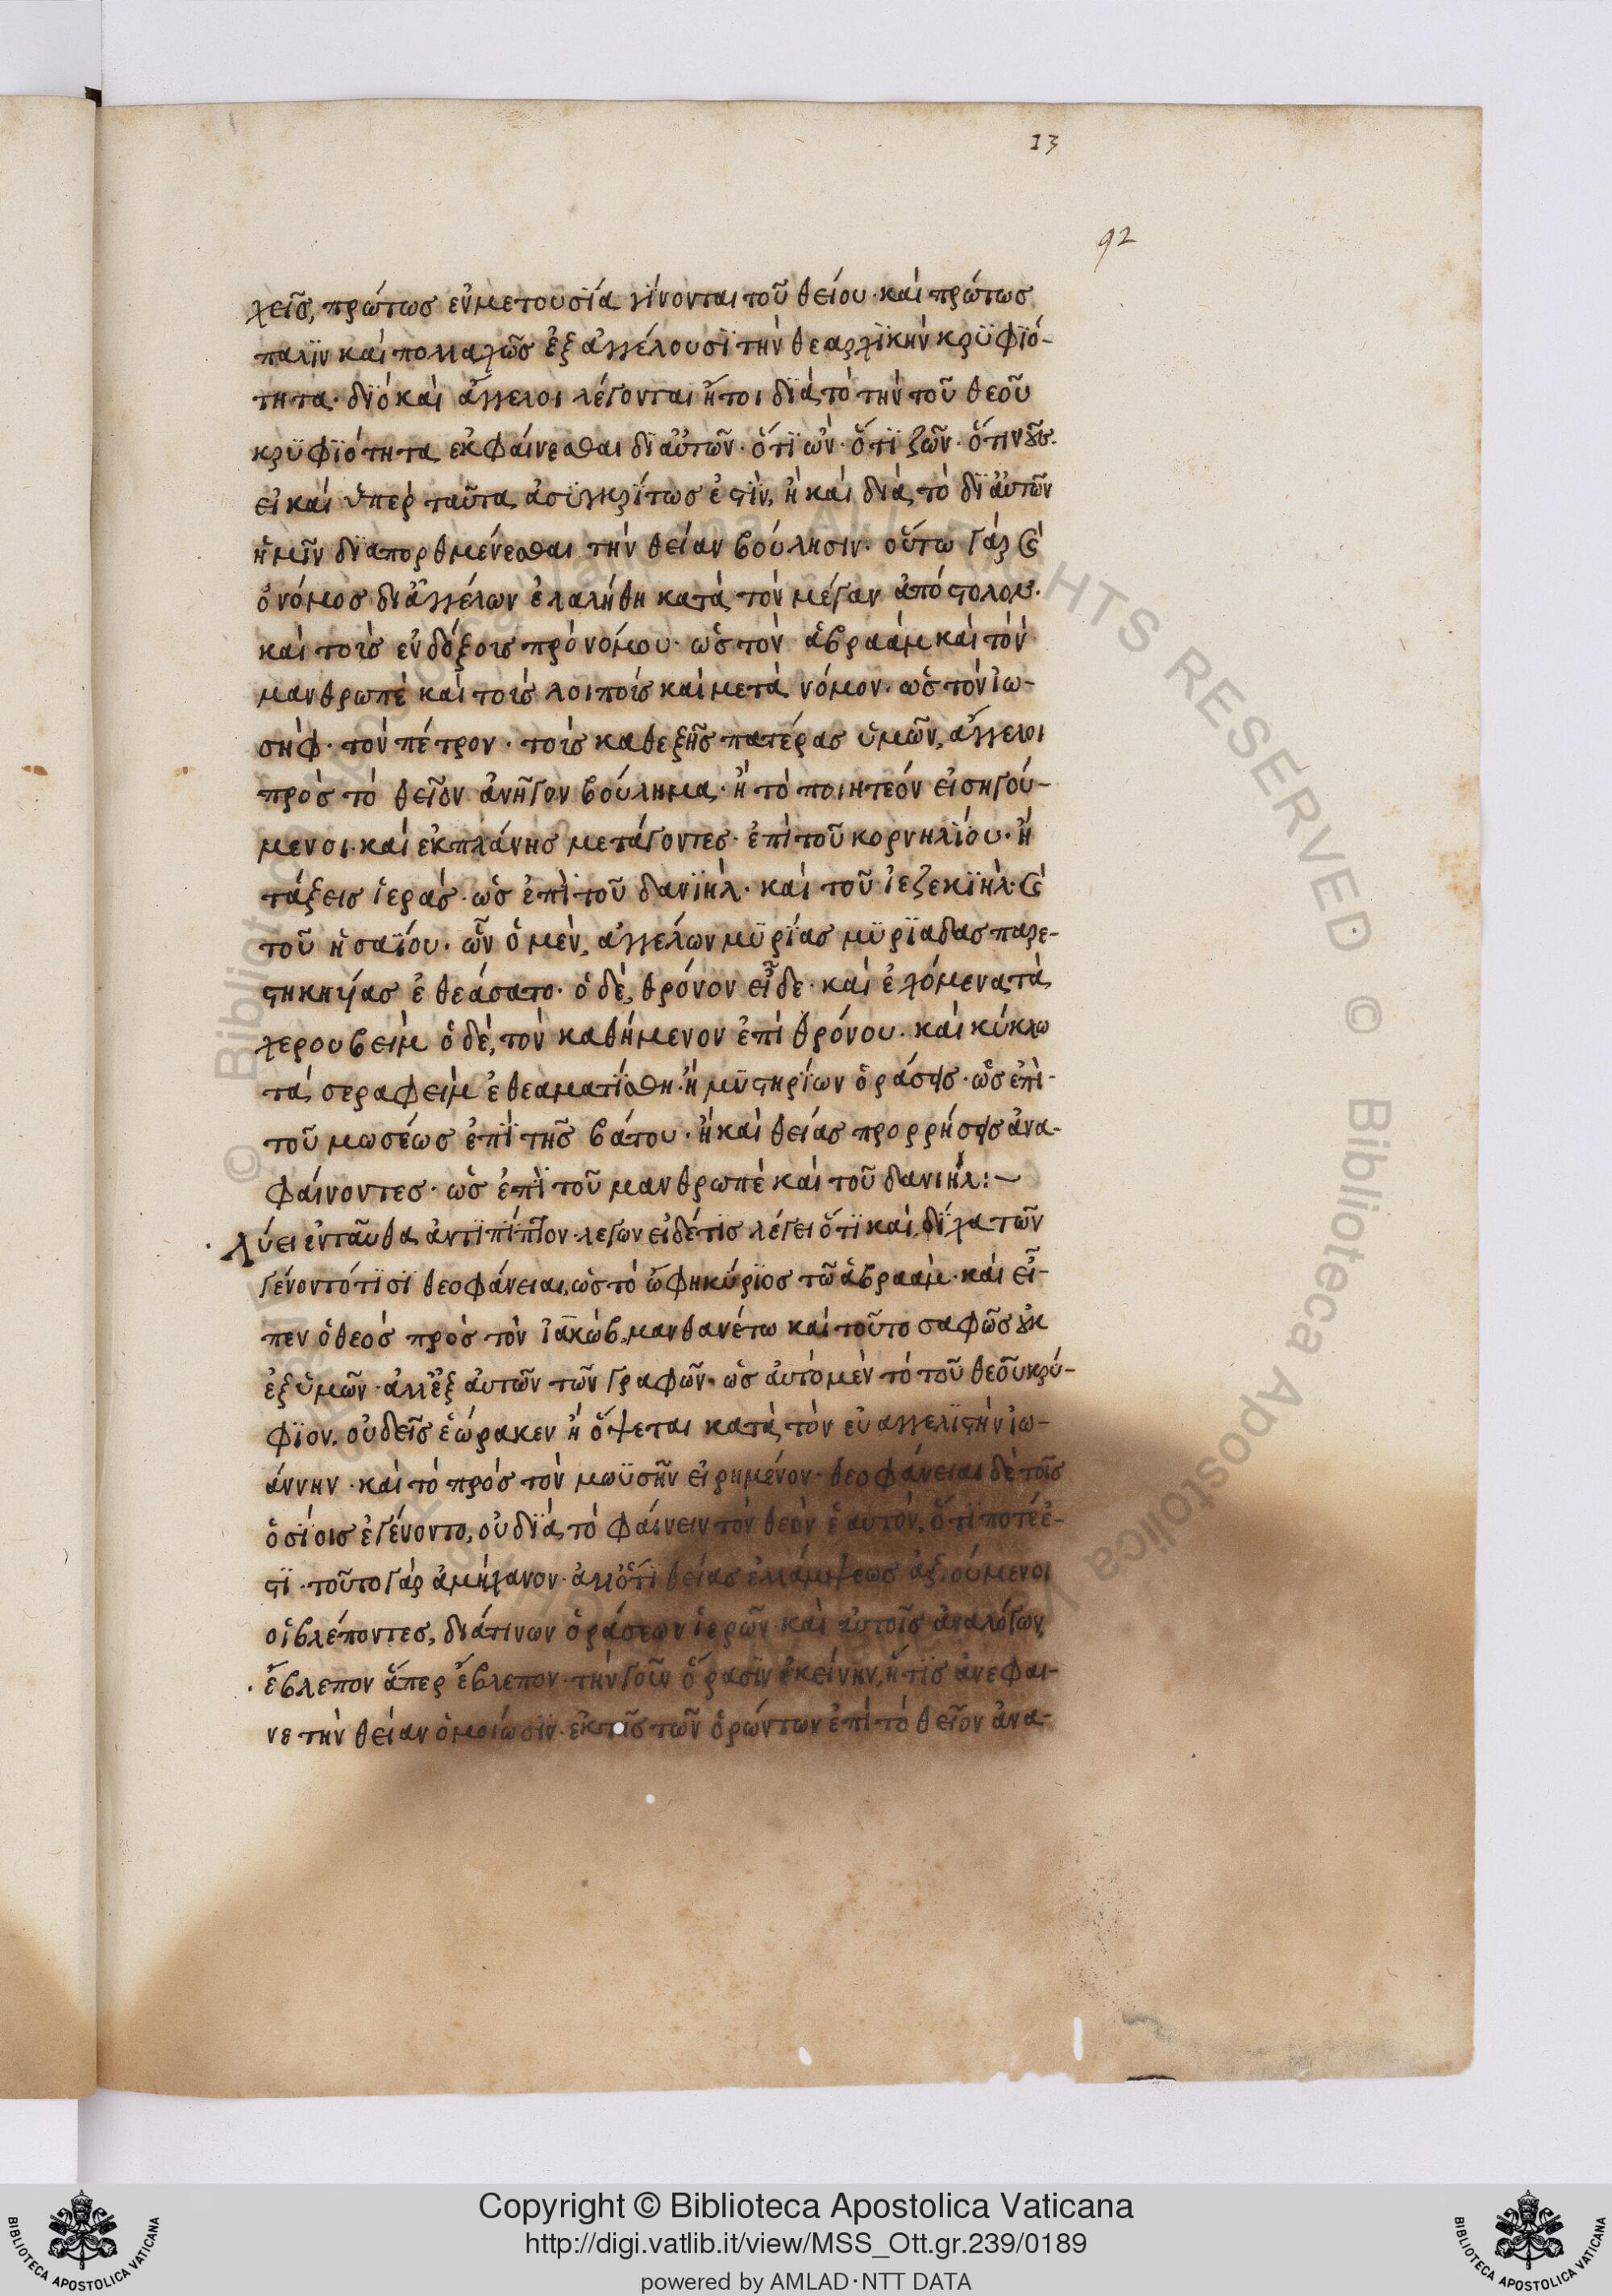 13
92
χεῖς, πρώτως ἐν μετουσία γίνονται τοῦ θείου· καὶ πρώτως
πάλϊν καὶ πολλαχῶς ἐξαγγέλουσϊ τὴν θεαρχϊκὴν κρϋφϊό-
τητα· δϊὸ καὶ ἄγγελοι λέγονται ἤτοι δϊὰ τὸ τὴν τοῦ θεοῦ
κρϋφϊότητα ἐκφαίνεσθαι δϊ αὐτῶν· ὅτϊ ὢν· ὅτϊ ζῶν· ὅτι νοῦς·
εἰ καὶ ὑπὲρ ταῦτα ἀσϋγκρίτως ἐστὶν, ἢ καὶ δϊὰ τὸ δϊ αὐτῶν
ἡμῖν δϊαπορθμένεσθαι τὴν θείαν βούλησιν· οὕτω γὰρ καὶ
ὁ νόμος δϊ ἀγγέλων ἐλαλήθη κατὰ τὸν μέγαν ἀπόστολον·
καὶ τοῖς ἐνδόξοις πρὸ νόμου· ὡς τὸν ἀβραὰμ καὶ τὸν
μανθρωπὲ καὶ τοῖς λοιποῖς καὶ μετὰ νόμον· ὡς τὸν ἰω-
σὴφ· τὸν πέτρον· τοῖς καθεξῆς πατέρας ὑμῶν, ἄγγελοι
πρὸς τὸ θεῖον ἀνῆγον βούλημα· ἢ τὸ ποιητεόν εἰσηγού-
μενοι· καὶ ἐκ πλάνης μετάγοντες· ἐπὶ τοῦ κορνηλίου· ἢ
τάξεις ἱεράς· ὡς ἐπὶ τοῦ δανϊὴλ· καὶ τοῦ ἰεζεκϊὴλ· καὶ
τοῦ ἡσαΐου· ὧν ὁ μὲν, ἀγγέλων μϋρίας μϋρϊαδας παρε-
στηκηΐας ἐθεάσατο· ὁ δὲ, θρόνον εἶδε· καὶ ἐχόμενα τὰ
χερουβεὶμ ὁ δὲ, τὸν καθήμενον ἐπὶ θρόνου· καὶ κύκλω
τὰ σεραφεὶμ ἐθεαματίσθη· ἢ μϋστηρίων ὁράσεις· ὡς ἐπὶ-
τοῦ μωσέως ἐπὶ τῆς βάτου· ἢ καὶ θείας προρρήσεις ἀνα-
φαίνοντες· ὡς ἐπὶ τοῦ μανθρωπὲ καὶ τοῦ δανιήλ:~
· λύει ἐνταῦθα ἀντϊπίπτον· λέγων εἰ δέ τϊς λέγει ὅτϊ καὶ δίχα τῶν
γένοντό τϊσϊ θεοφάνειαι, ὡς τὸ ὤφη κύρϊος τῶ ἀβραάμ· καὶ εἶ-
πεν ὁ θεὸς πρὸς τὸν ἰακώβ, μανθανέτω καὶ τοῦτο σαφῶς οὐκ
ἐξ ὑμῶν· ἀλλ' ἐξ αὐτῶν τῶν γραφῶν· ὡς αὐτὸ μὲν τὸ τοῦ θεοῦ κρύ-
φϊον. οὐδεῖς ἑώρακεν ἢ ὄψεται κατὰ τὸν εὐαγγελϊστὴν ἰω-
άννην· καὶ τὸ πρὸς τὸν μωϋσῆν εἰρημένον· θεοφάνειαι δὲ τοῖς
ὁσίοις ἐγένοντο, οὐ δϊὰ τὸ φαίνειν τὸν θεὸν ἑαυτὸν, ὅτϊ ποτέ ἐ-
στϊ· τοῦτο γὰρ ἀμήχανον· ἀλλ' ὅτϊ θείας ἐλλάμψεως ἀξιούμενοι
οἱ βλέποντες, διά τινων ὁράσεων ἱερῶν καὶ αὐτοῖς ἀναλόγων
· ἔβλεπον ἅπερ ἔβλεπον· τὴν γοῦν ὅρασϊν ἐκείνην, ἥτϊς ἀνεφαι-
νε τὴν θείαν ὁμοίωσϊν· ἐκ τῆς τῶν ὁρώντων ἐπὶ τὸ θεῖον ἀνα-
Copyright © Biblioteca Apostolica Vaticana
http://digi.vatlib.it/view/MSS_Ott.gr.239/0189
powered by AMLAD·NTT DATA